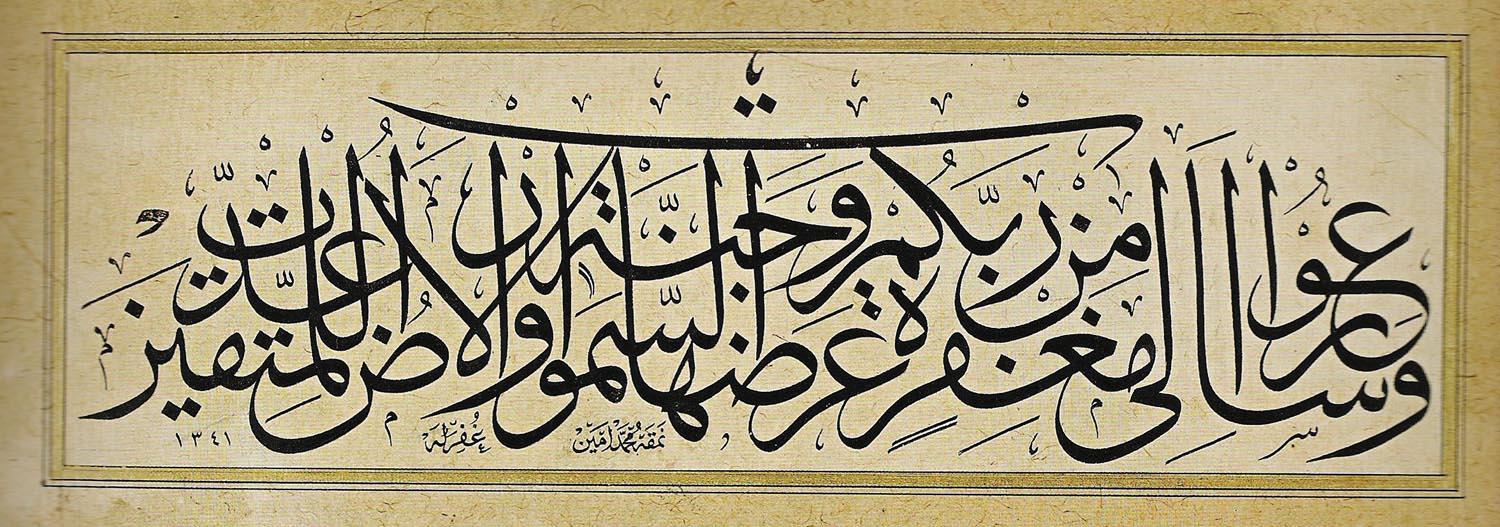 وَسَارِعُوا إِلَى مَغْفِرَةٍ مِنْ رَبِّكُمْ وَجَنَّةٍ عَرْضُهَا السَّمٰوَاتُ وَالْاَرْضُ اُعِدَّتْ لِلْمُتَّقِينَ
نمقه محمد امين غفر له ١٣٤١